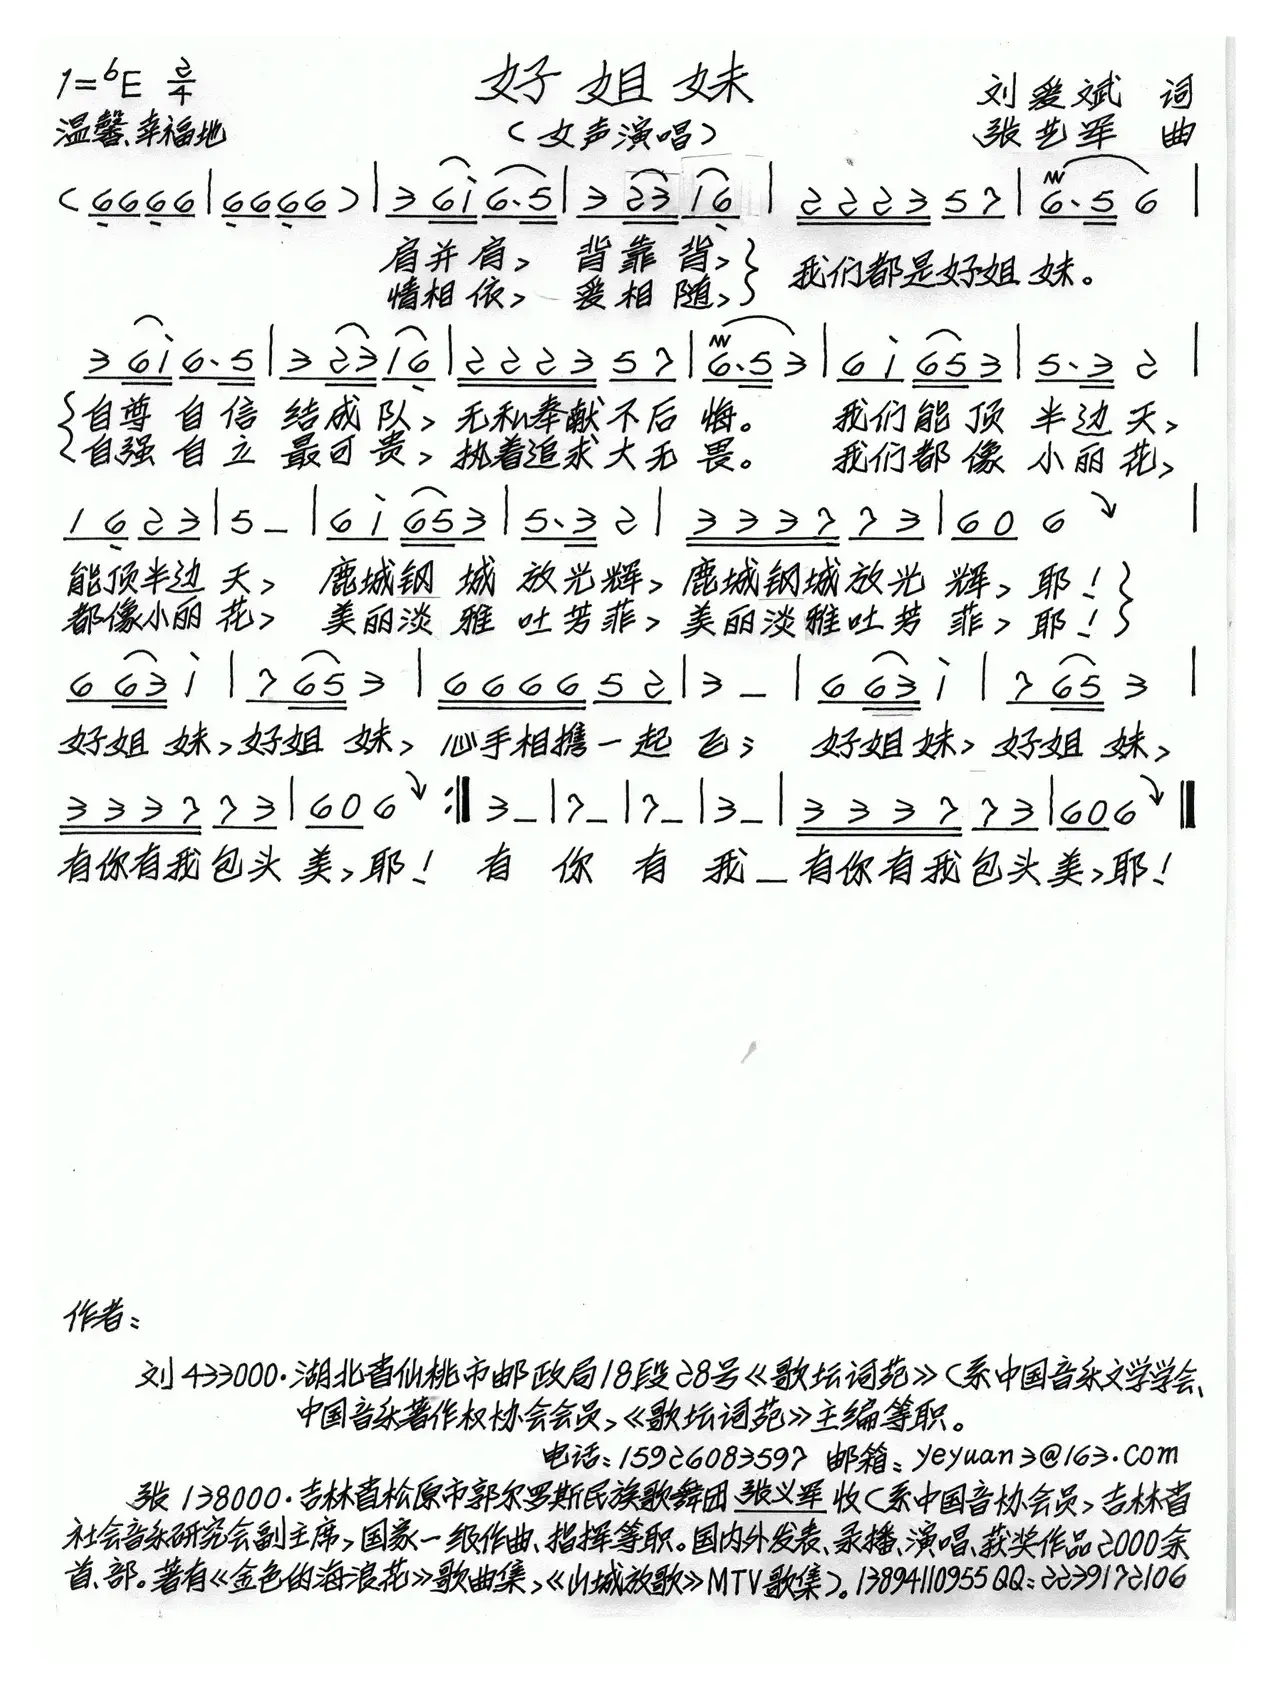 1=♭E 2/4
好姐妹
刘爱斌 词
温馨、幸福地
(女声演唱)
张艺军 曲
(6666|6666)|3 6i 6·5|3 23 16|2223 57|6·5 6|
肩并肩, 背靠背, 我们都是好姐妹。
情相依, 爱相随,
3 6i 6·5|3 23 16|2223 57|6·5 3|6i 653|5·3 2|
自尊自信结成队, 无私奉献不后悔。 我们能顶半边天,
自强自立最可贵, 执着追求大无畏。 我们都像小丽花,
1623|5–|6i 653|5·3 2|3337 73|60 6|
能顶半边天, 鹿城钢城放光辉, 鹿城钢城放光辉, 耶!
都像小丽花, 美丽淡雅吐芳菲, 美丽淡雅吐芳菲, 耶!
6 63 i|7 65 3|6666 52|3–|6 63 i|7 65 3|
好姐妹, 好姐妹, 心手相携一起飞; 好姐妹, 好姐妹,
3337 73|60 6:‖3–|7–|7–|3–|3337 73|60 6‖
有你有我包头美, 耶! 有你有我– 有你有我包头美, 耶!
作者:
刘 433000·湖北省仙桃市邮政局18段28号《歌坛词苑》(系中国音乐文学学会、
中国音乐著作权协会会员,《歌坛词苑》主编等职。
电话:15926083597 邮箱:yeyuan3@163.com
张 138000·吉林省松原市郭尔罗斯民族歌舞团张义军收(系中国音协会员, 吉林省
社会音乐研究会副主席, 国家一级作曲、指挥等职。国内外发表、录播、演唱、获奖作品2000余
首、部。著有《金色的海浪花》歌曲集,《山城放歌》MTV歌集)。13894110955 QQ:2239172106